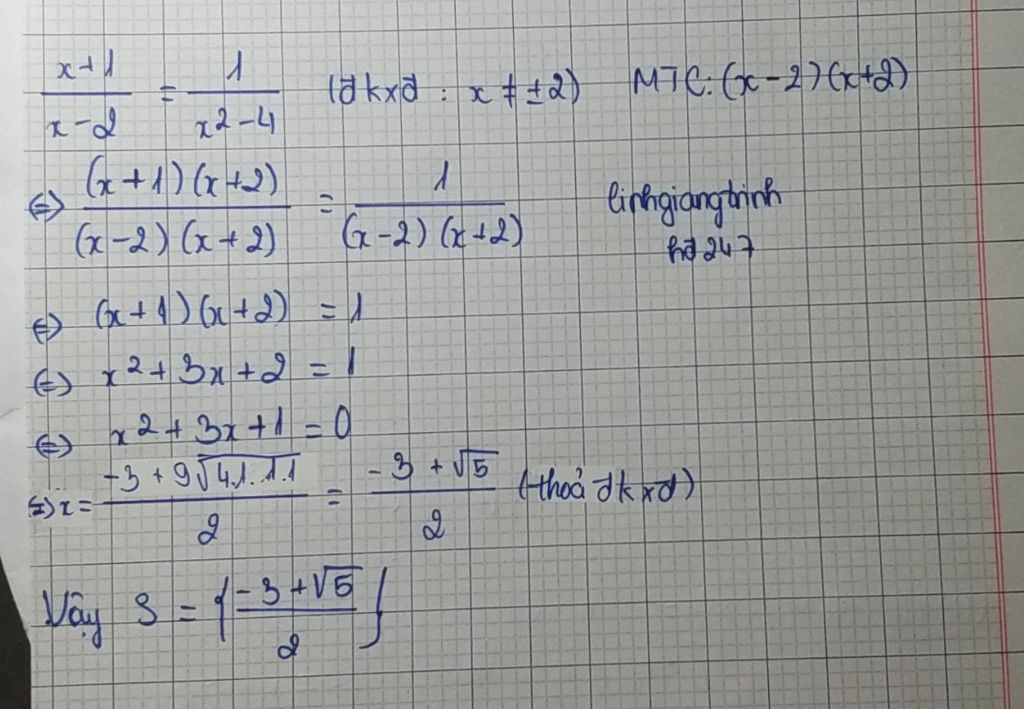 x+1/x-2 = 1/x²-4 (đkxđ : x ≠ ±2) MTC: (x-2)(x+2)
⇔ (x+1)(x+2)/(x-2)(x+2) = 1/(x-2)(x+2)
linhgiangtrinh
hđ247
⇔ (x+1)(x+2) = 1
⇔ x²+3x+2 = 1
⇔ x²+3x+1 = 0
⇔ x = -3+9√4.1.1.1/2 = -3+√5/2 (thoả đkxđ)
Vậy S = {-3+√5/2}